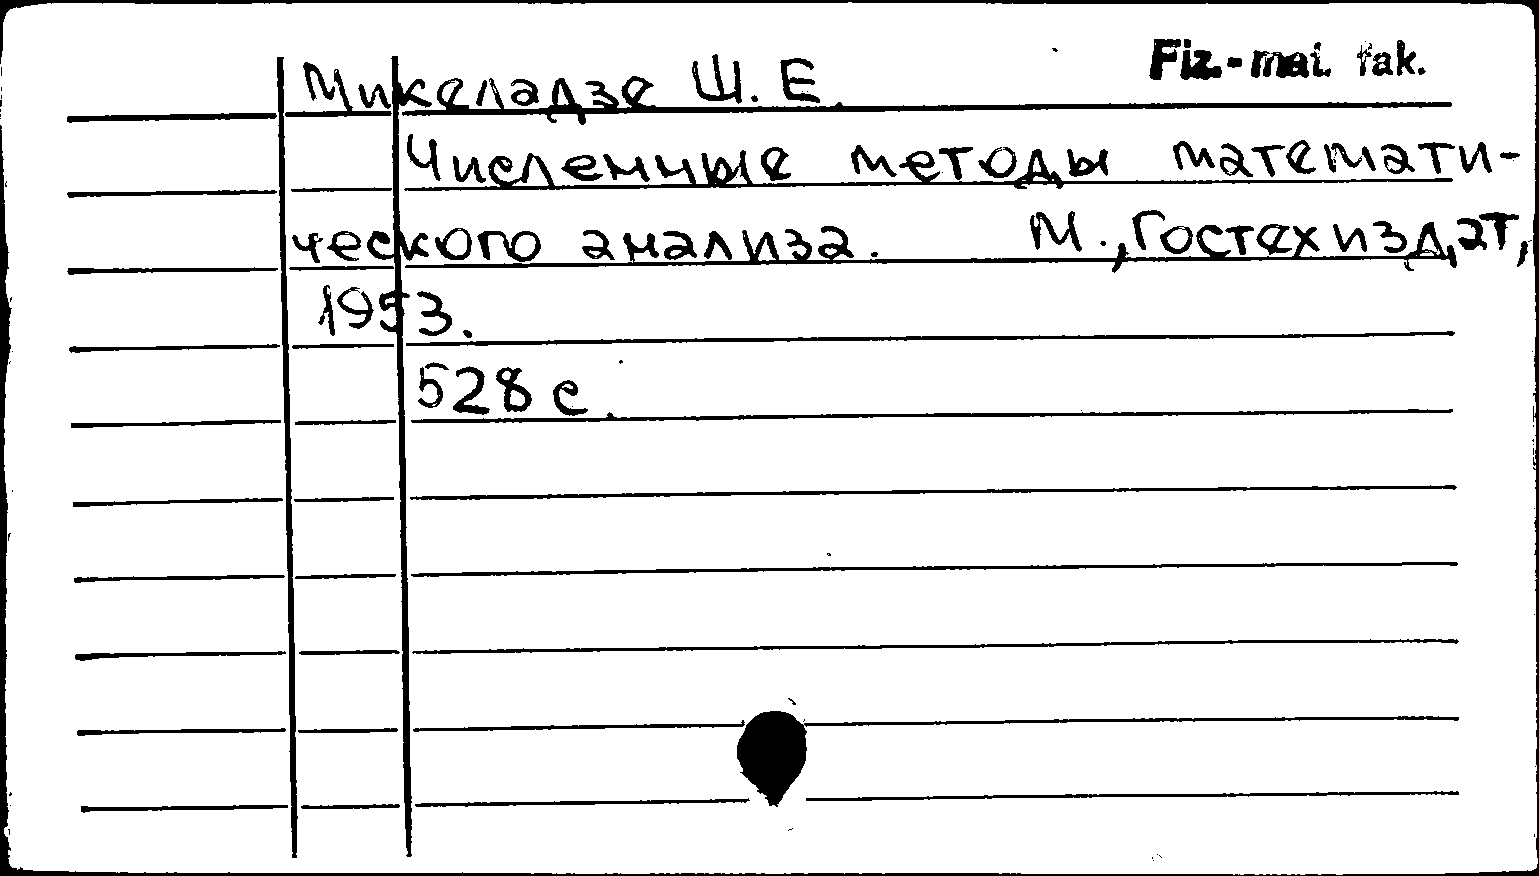 Fiz.-mat. fak.
Микеладзе Ш. Е.
Численные методы математи-
ческого анализа. М., Гостехиздат,
1953.
528 с.